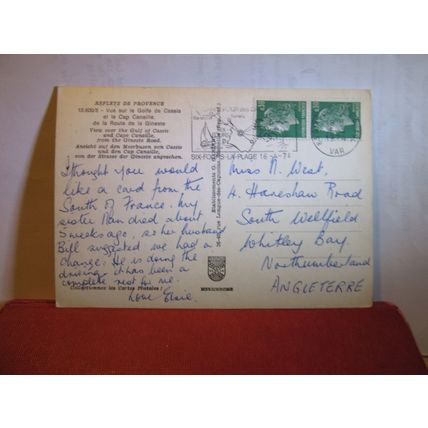 REFLETS DE PROVENCE
Vue sur le Golfe de Cassis
et le Cap Canaille,
de la Route de la Gineste
View over the Gulf of Cassis
and Cape Canaille,
from the Gineste Road.
Ansicht auf den Meerbusen von Cassis
und den Cap Canaille,
von der Strasse der Gineste angesehen.
I thought you would
like a card from the
South of France. My
sister Nan died about
5 weeks ago, so her husband
Bill suggested we had a
change. He is doing the
driving. It has been a
complete rest for me.
Love Elsie.
Collectionnez les Cartes Postales !
SIX-FOURS-LA-PLAGE
VAR
Miss N. West,
4, Hareshaw Road
South Wellfield
Whitley Bay
Northumberland
ANGLETERRE